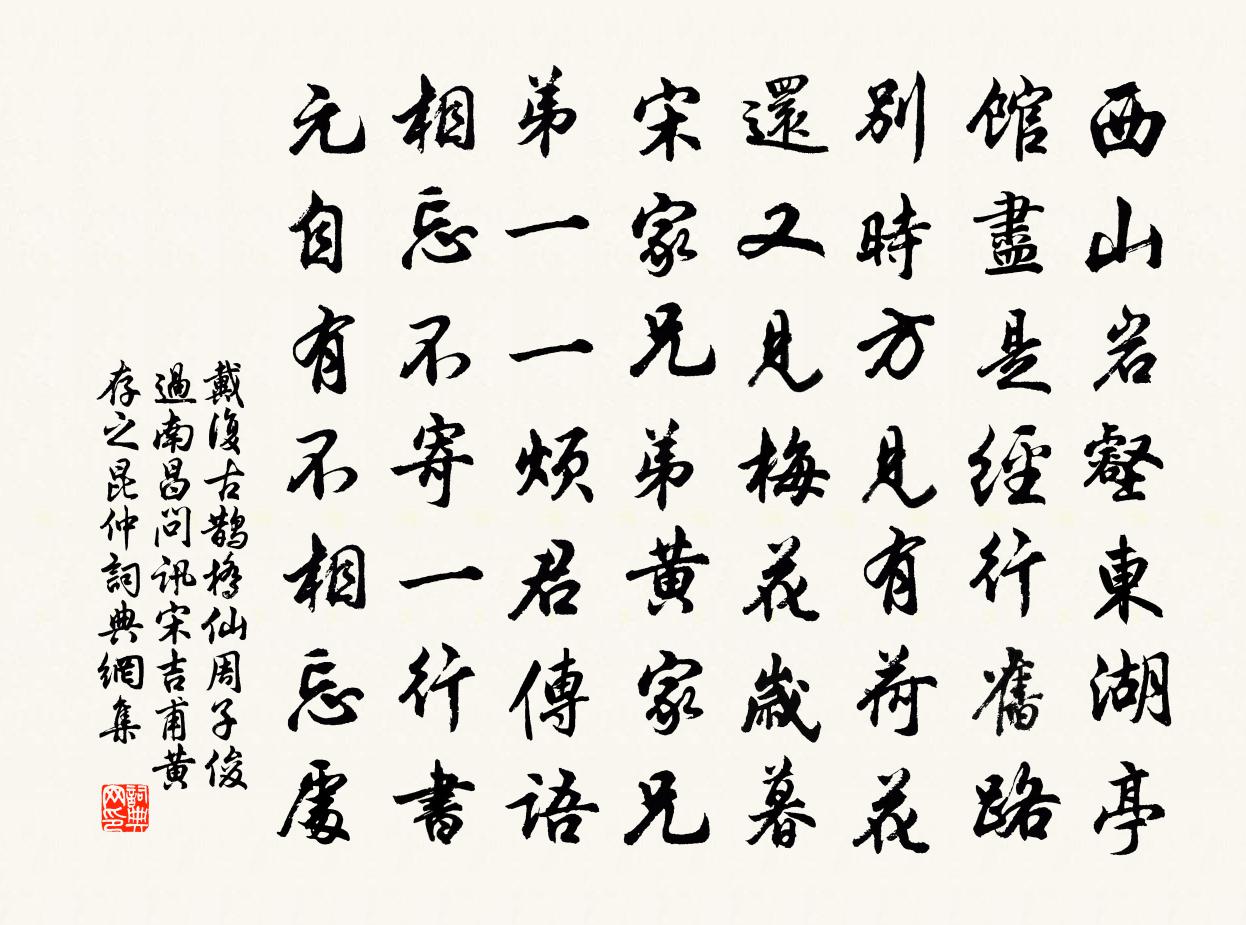 西山岩壑東湖亭
館盡是經行舊路
別時方見有荷花
還又見梅花歲暮
宋家兄弟黃家兄
弟一一煩君傳語
相忘不寄一行書
元自有不相忘處
戴復古鵲橋仙周子俊
過南昌問訊宋吉甫黃
存之昆仲詞典網集
詞典
网印